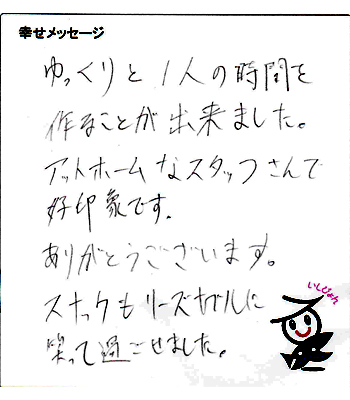 幸せメッセージ
ゆっくりと1人の時間を
作ることが出来ました。
アットホームなスタッフさんで
好印象です。
ありがとうございます。
スナックもリーズナブルに
笑って過ごせました。
いしじょん